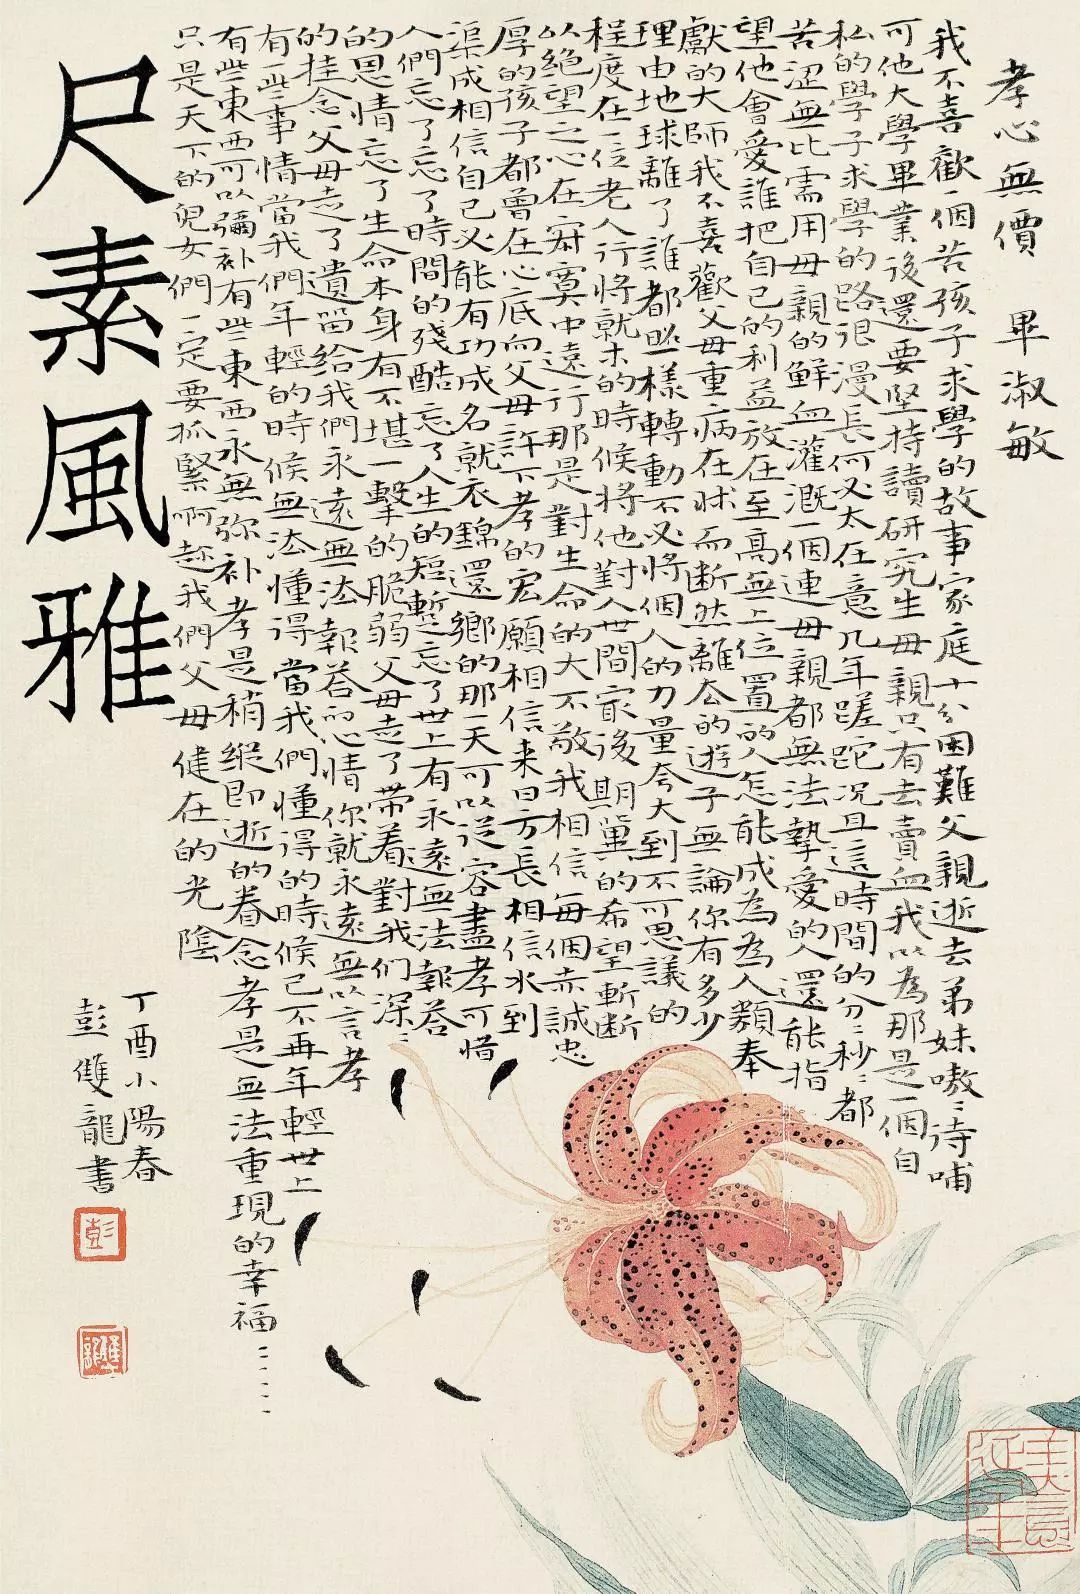 孝心無價 畢淑敏
我不喜歡一個苦孩子求學的故事家庭十分困難父親逝去弟妹嗷〻待哺
可他大學畢業後還要堅持讀研究生母親只有去賣血我以為那是一個自
私的學子求學的路很漫長何必太在意几年蹉跎況且這時間的分〻秒〻都
苦澀無比需用母親的鮮血灌溉一個連母親都無法摯愛的人還能指
望他會愛誰把自己的利益放在至高無上位置的人怎能成為為人類奉
獻的大師我不喜歡父母重病在牀而断然離去的遊子無論你有多少
理由地球離了誰都照樣轉動不必將個人的力量夸大到不可思議的
程度在一位老人行將就木的時候將他對人世間最後期冀的希望斬断
以絕望之心在寂寞中遠行那是對生命的大不敬我相信每個赤誠忠
厚的孩子都曾在心底向父母許下孝的宏願相信来日方長相信水到
渠成相信自己必能有功成名就衣錦還鄉的那一天可以從容盡孝可惜
人們忘了忘了時間的殘酷忘了人生的短暫忘了世上有永遠無法報答
的恩情忘了生命本身有不堪一擊的脆弱父母走了带着對我们深〻
的挂念父母走了遺留給我們永遠無法報答的心情你就永遠無以言孝
有一些事情當我們年輕的時候無法懂得當我們懂得的時候已不再年輕世上
有些東西可以彌补有些東西永無弥补孝是稍縱即逝的眷念孝是無法重現的幸福……
只是天下的兒女們一定要抓緊啊趁我們父母健在的光陰
丁酉小陽春
彭雙龍書
彭
尺素風雅